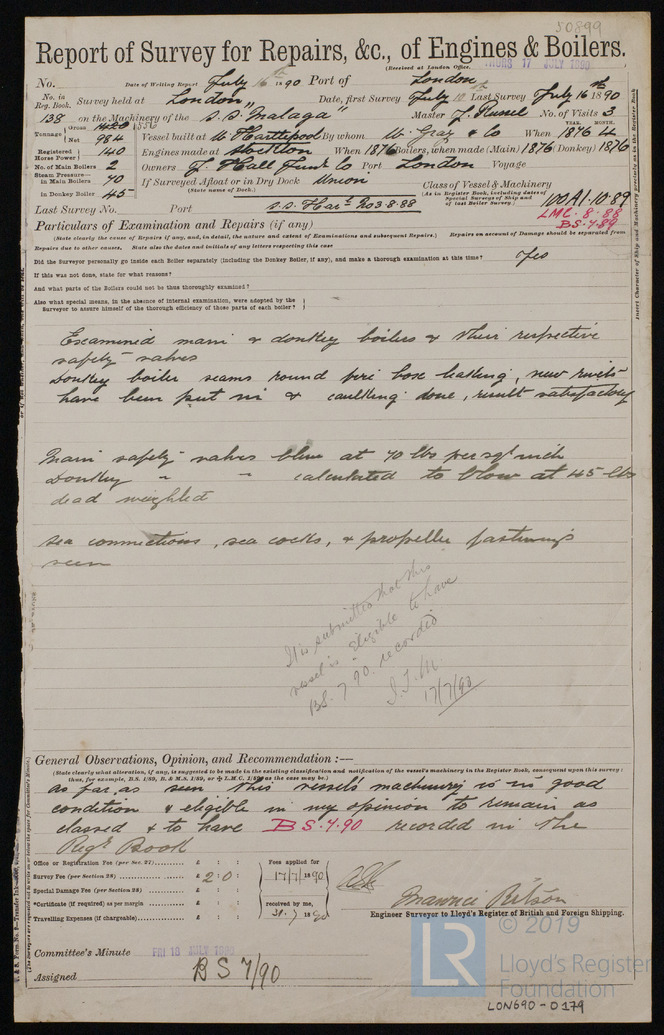 50899
Report of Survey for Repairs, &c., of Engines & Boilers.
(Received at London Office, THURS 17 JULY 1890
No. Date of Writing Report July 16th 1890 Port of London
No. in Reg. Book. Survey held at London Date, first Survey July 10th Last Survey July 16th 1890
138 on the Machinery of the S.S. Malaga Master J. Russel No. of Visits 3
Tonnage Gross 1550 Net 984 Vessel built at W Hartlepool By whom W. Gray & Co When 1876 4 YEAR. MONTH.
Registered Horse Power 140 Engines made at Stockton When 1876 Boilers, when made (Main) 1876 (Donkey) 1876
No. of Main Boilers 2 Owners J. Hall Junr & Co Port London Voyage
Steam Pressure— in Main Boilers 70 If Surveyed Afloat or in Dry Dock Union
(State name of Dock.)
in Donkey Boiler 45 Class of Vessel & Machinery 100A1.10.89
(As in Register Book, including dates of Special Surveys of Ship and of last Boiler Survey.)
LMC. 8.88
BS.7.89
Last Survey No. Port S.S. Har. No3-8.88
Particulars of Examination and Repairs (if any)
(State clearly the cause of Repairs if any, and, in detail, the nature and extent of Examinations and subsequent Repairs.) Repairs on account of Damage should be separated from
Repairs due to other causes. State also the dates and initials of any letters respecting this case
Did the Surveyor personally go inside each Boiler separately (including the Donkey Boiler, if any), and make a thorough examination at this time? Yes
If this was not done, state for what reasons?
And what parts of the Boilers could not be thus thoroughly examined?
Also what special means, in the absence of internal examination, were adopted by the
Surveyor to assure himself of the thorough efficiency of those parts of each boiler?
Examined main & donkey boilers & their respective
safety valves
Donkey boiler seams round fire box leaking, new rivets
have been put in & caulking done, result satisfactory
Main safety valves blew at 70 lbs per sq inch
Donkey " " calculated to blow at 45 lbs
dead weighted
Sea connections, sea cocks, & propeller fastenings
seen
It is submitted that this
vessel is eligible to have
BS. 7.90. recorded
17/7/90
General Observations, Opinion, and Recommendation :—
(State clearly what alteration, if any, is suggested to be made in the existing classification and notification of the vessel's machinery in the Register Book, consequent upon this survey:
thus, for example, B.S. 1/89, B. & M.S. 1/89, or ✠ L.M.C. 1/89 as the case may be.)
As far as seen this vessels machinery is in good
condition & eligible in my opinion to remain as
classed & to have BS.7.90 recorded in the
Regr Book
Office or Registration Fee (per Sec. 27)......... £ : : Fees applied for
Survey Fee (per Section 28) ......... £ 2 : 0 : 17/7/1890
Special Damage Fee (per Section 28) ......... £ : :
*Certificate (if required) as per margin ......... £ : : received by me,
Travelling Expenses (if chargeable)......... £ : : 31.7.1890
Engineer Surveyor to Lloyd's Register of British and Foreign Shipping.
Committee's Minute FRI 18 JULY 1890
Assigned BS 7/90
© 2019
LR
Lloyd's Register
Foundation
LON690-0179